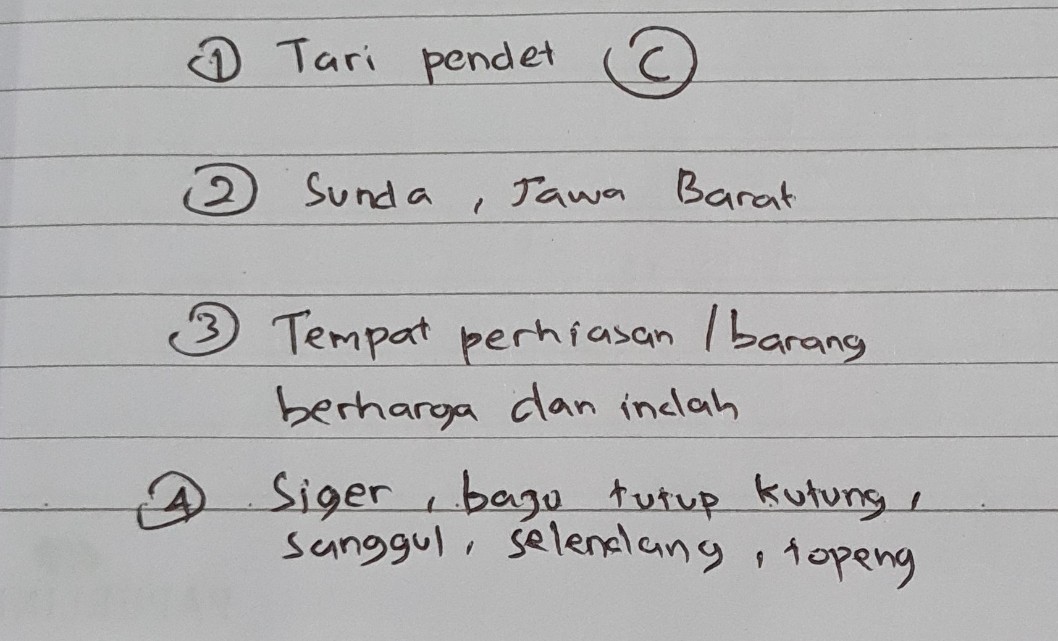 ① Tari pendet Ⓒ
② Sunda, Jawa Barat
③ Tempat perhiasan / barang
berharga dan indah
④ Siger, baju tutup kutung,
sanggul, selendang, topeng